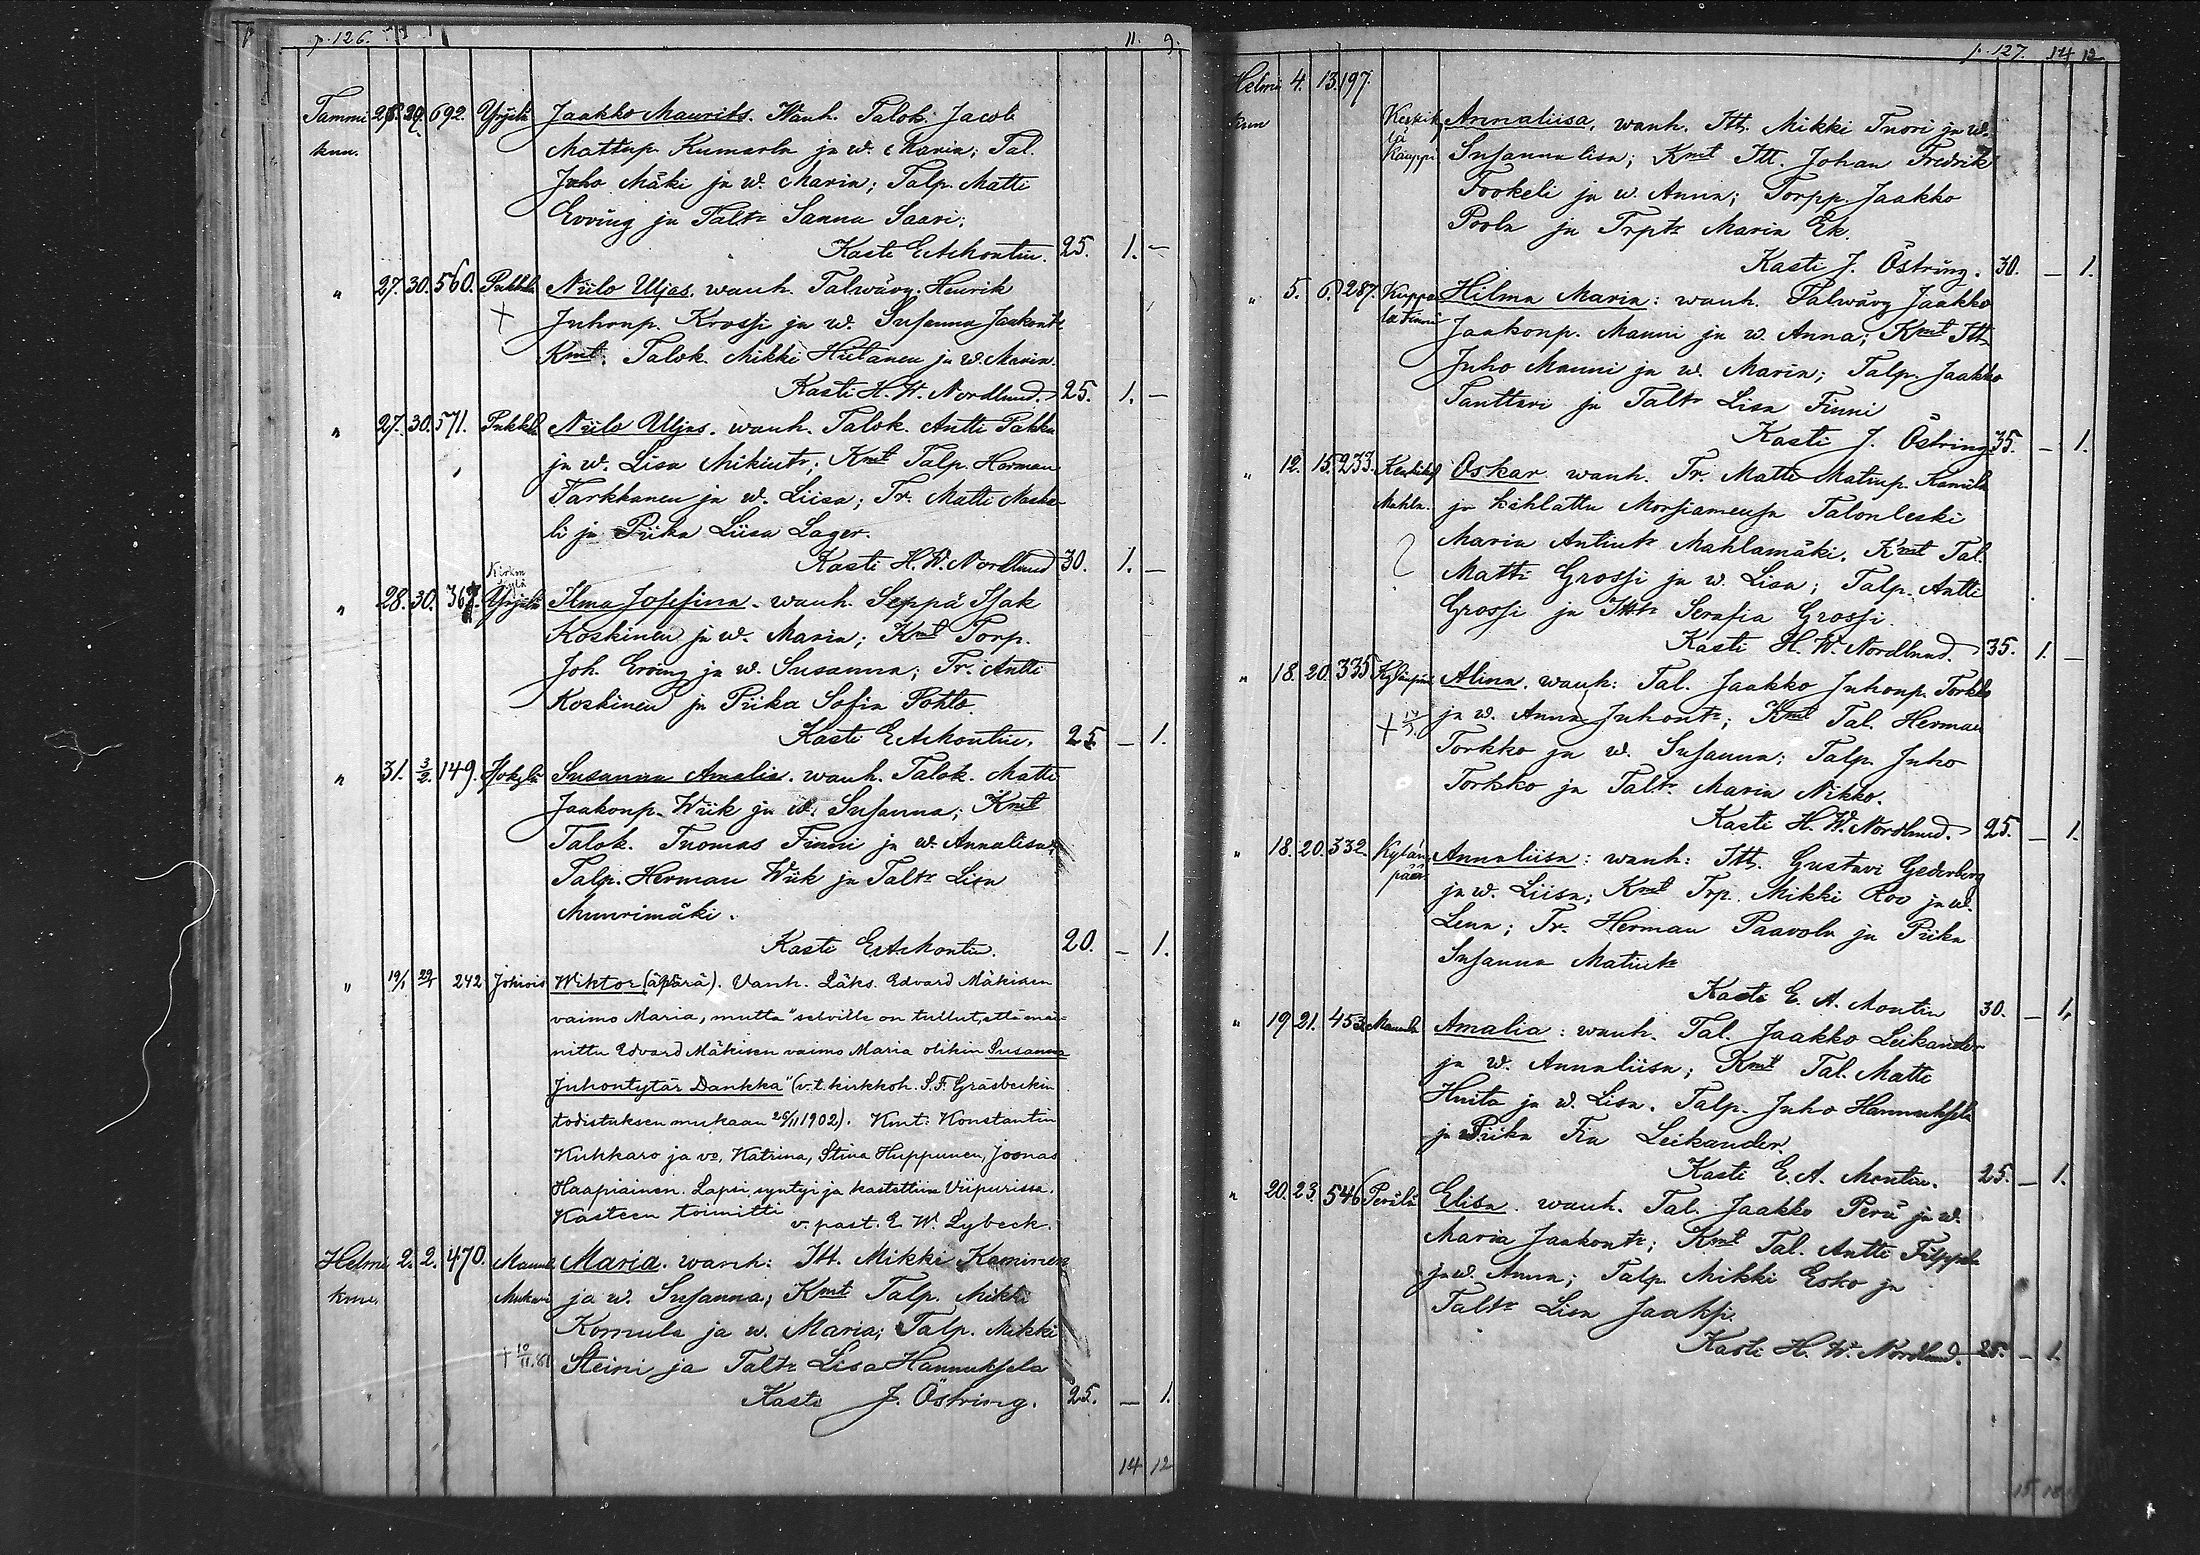 p. 126. 11. 9.
Tammi 28. 29. 692. Yrjälä Jaakko Maurits. Wanh. Talok. Jacob
kuu. Mattsp. Kumarla ja w. Maria; Tal.
Juho Mäki ja w. Maria; Talp. Matti
Erving ja Taltr Sanna Saari.
Kasti E A Montin. 25. 1. —
" 27. 30. 560. Niilo Uljas. wanh. Talwäwy. Henrik
+ Juhonp. Krossi ja w. Susanna Jaakontr.
Kmt. Talok. Mikki Hietanen ja w. Maria.
Kasti H. W. Nordlund. 25. 1. —
" 27. 30. 571. Niilo Uljas. wanh. Talok. Antti Pakka
ja w. Lisa Mikintr; Kmt Talp. Herman
Tarkkanen ja w. Liisa; Tr. Matti Naska-
li ja Piika Liisa Lager.
Kasti H. W. Nordlund 30. 1. —
" 28. 30. 367. Yrjälä Ilma Josefina. wanh. Seppä Isak
Koskinen ja w. Maria; Kmt Torp.
Joh. Erving ja w. Susanna; Tr. Antti
Koskinen ja Piika Sofia Pohto.
Kasti E A Montin. 25 — 1.
" 31. 3/2. 149. Susanna Amalia. wanh. Talok. Matti
Jaakonp. Wiik ja w. Susanna; Kmt
Talok. Tuomas Finni ja w. Annalisa;
Talp. Herman Wiik ja Taltr Lisa
Muurimäki.
Kasti E A Montin. 20. — 1.
" 19/1 29/1 242 Jokiois Wiktor (äpärä). Vanh. Läks. Edvard Mäkisen
vaimo Maria, mutta "selville on tullut, että mai-
nittu Edvard Mäkisen vaimo Maria olikin Susanna
Juhontytär Dankka" (v.t. kirkkoh. S. F. Gräsbeckin
todistuksen mukaan 26/11 1902). Kmt: Konstantin
Kukkaro ja vo, Katrina, Stina Huppunen, Joonas
Haapiainen. Lapsi syntyi ja kastettiin Viipurissa.
Kasteen toimitti v. past. E. W. Lybeck.
Helmi 2. 2. 470. Maria. wanh: Itt. Mikki Keminen
kuu. ja w. Susanna; Kmt Talp. Mikki
Komula ja w. Maria; Talp. Mikki
Steini ja Taltr Lisa Hannuksela
Kasti J. Östring. 25. — 1.
14 12
p. 127. 14 12
Helmi 4. 13. 197.
kuu Annaliisa. wanh. Itt. Mikki Tuori ja w.
Kauppi Susannalisa; Kmt Itt. Johan Fredrik
Fookeli ja w. Anna; Torpp. Jaakko
Poola ja Trptr Maria Ek.
Kasti J. Östring. 30. — 1.
" 5. 6. 287. Hilma Maria: wanh. Talwäwy Jaakko
Jaakonp. Manni ja w. Anna; Kmt Itt.
Juho Manni ja w. Maria; Talp. Jaakko
Santtari ja Taltr Lisa Finni
Kasti J. Östring 35. — 1.
" 12. 15. 233. Oskar. wanh. Tr. Matti Matinp. Kamila
Mahla. ja kihlattu Morsiamensa Talonleski
Maria Antintr Mahlamäki. Kmt Tal.
Matti Grossi ja w. Lisa; Talp. Antti
Grossi ja Ittr Serafia Grossi.
Kasti H. W. Nordlund. 35. 1. —
" 18. 20. 335 Alina. wanh: Tal. Jaakko Juhonp. Torkko
+ ja w. Anna Juhontr; Kmt Tal. Herman
Torkko ja w. Susanna; Talp. Juho
Torkko ja Taltr. Maria Nikko.
Kasti H. W. Nordlund. 25. — 1.
" 18. 20. 332. Kylän Annaliisa: wanh: Itt. Gustavi Gederberg
pää ja w. Liisa; Kmt Trp. Mikki Roo ja w.
Lena; Tr. Herman Paavola ja Piika
Susanna Matintr
Kasti E. A. Montin 30. — 1.
" 19 21. 453. Amalia: wanh. Tal. Jaakko Leikander
ja w. Annaliisa; Kmt Tal. Matti
Huita ja w. Lisa. Talp. Juho Hannuksela
ja Piika Fia Leikander.
Kasti E. A. Montin. 25. — 1.
" 20. 23. 546 Perälä Elisa. wanh. Tal. Jaakko Perä ja w.
Maria Jaakontr; Kmt Tal. Antti Filppula
ja w. Anna; Talp. Mikki Esko ja
Taltr Lisa Jaaksi.
Kasti H. W. Nordlund. 25. — 1.